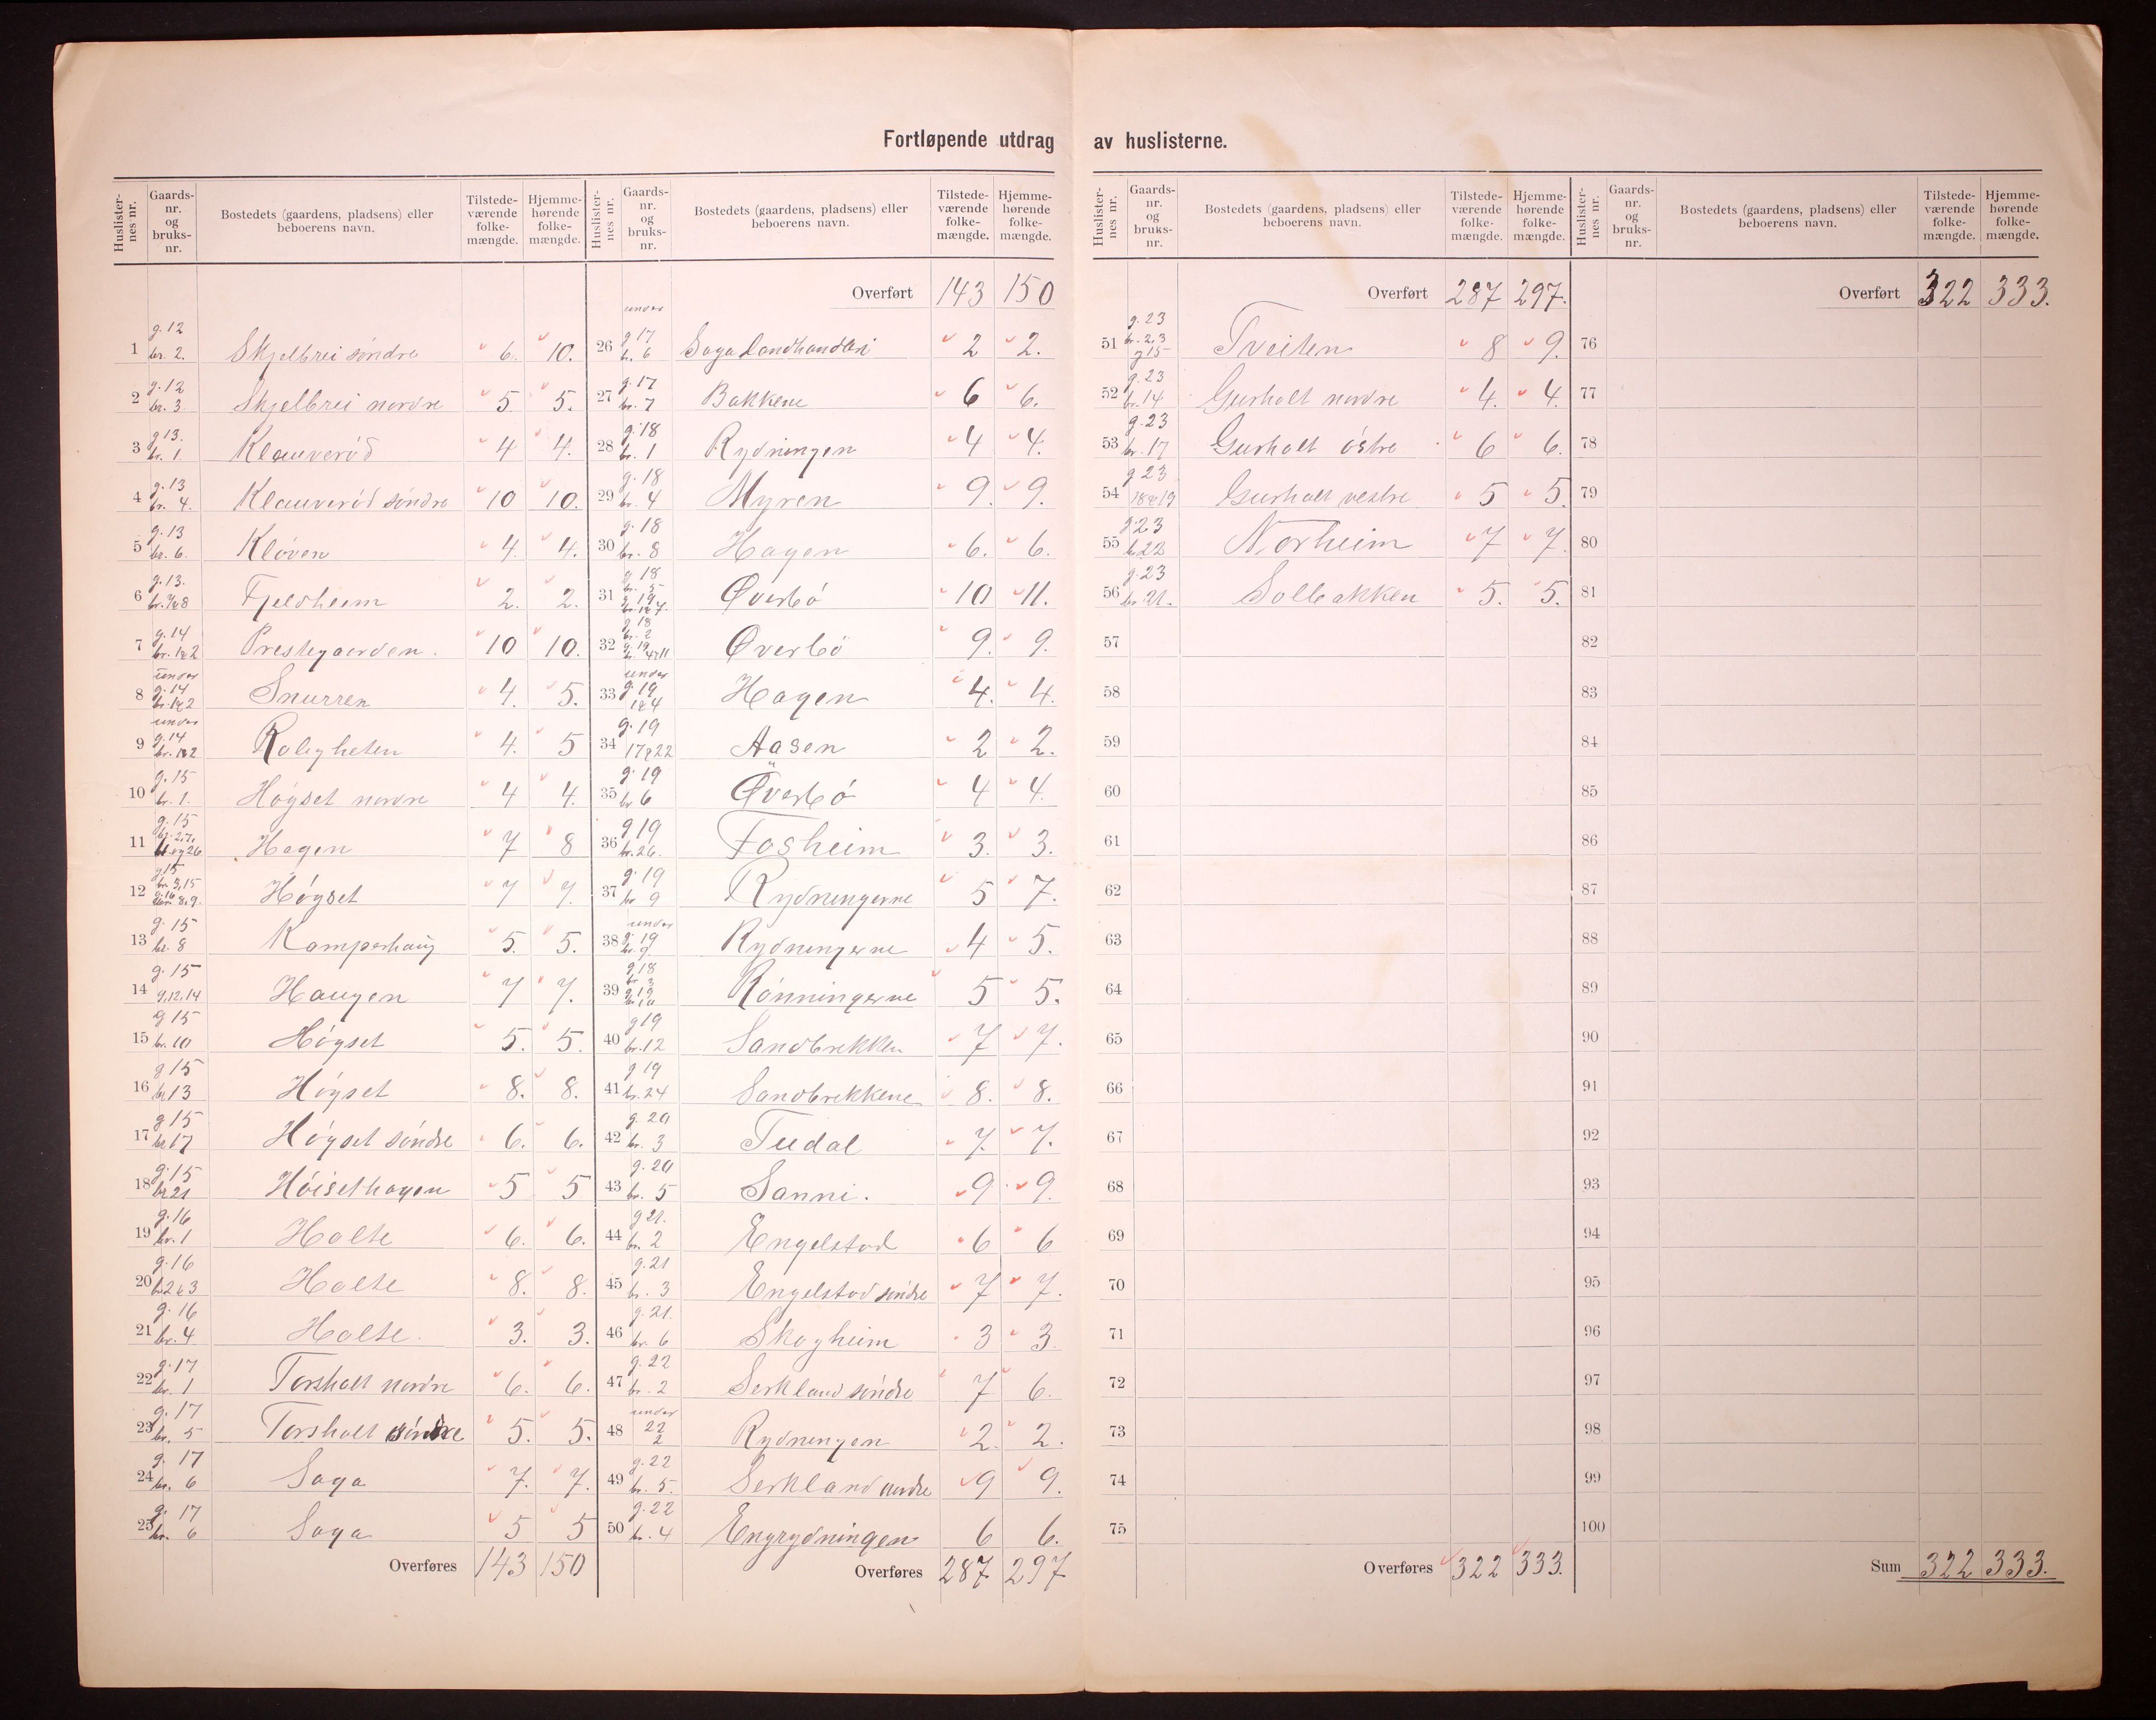 Fortløpende utdrag av huslisterne.
Huslister-nes nr. Gaards-nr. og bruks-nr. Bostedets (gaardens, pladsens) eller beboerens navn. Tilstede-værende folke-mængde. Hjemme-hørende folke-mængde.
1 g. 12 br. 2. Skjelbrei søndre 6. 10.
2 g. 12 br. 3. Skjelbrei nordre 5 5.
3 g 13. br. 1 Klauverød 4 4.
4 g. 13 br. 4. Klauverød søndre 10 10.
5 g. 13 br. 6. Kløven 4. 4.
6 g. 13. br. 7&8 Fjeldheim 2. 2.
7 g. 14 br. 1&2 Prestegaarden. 10 10.
8 under g. 14 br. 1&2 Snurren 4. 5.
9 under g. 14 br. 1&2 Roligheten 4. 5
10 g. 15 br. 1. Høyset nordre 4 4.
11 g. 15 br. 2,7, 11 og 26 Hagen 7 8
12 g 15 br. 3,15 g. 16 br. 8,9. Høyset 7 7.
13 g. 15 br. 8 Kamperhaug 5. 5.
14 g. 15 9,12,14 Haugen 7 7.
15 g 15 br. 10 Høyset 5. 5.
16 g 15 br 13 Høyset 8. 8.
17 g 15 br 17 Høyset søndre 6. 6.
18 g. 15 br 21 Høisethagen 5 5
19 g. 16 br. 1 Holte 6. 6.
20 g. 16 br 2 & 3 Holte 8. 8.
21 g. 16 br. 4 Holte. 3. 3.
22 g. 17 br. 1 Torsholt nordre 6. 6.
23 g. 17 br. 5 Torsholt søndre 5. 5.
24 g. 17 br. 6 Saga 7. 7.
25 g. 17 br. 6 Saga 5 5
Overføres 143 150
Huslister-nes nr. Gaards-nr. og bruks-nr. Bostedets (gaardens, pladsens) eller beboerens navn. Tilstede-værende folke-mængde. Hjemme-hørende folke-mængde.
Overført 143 150
26 under g 17 b. 6 Saga Landhandleri 2 2.
27 g. 17 br. 7 Bakkene 6 6.
28 g. 18 br. 1 Rydningen 4 4.
29 g. 18 br. 4 Myren 9. 9.
30 g. 18 br. 8 Hagen 6. 6.
31 g 18 br. 5 g 19 br. 1&7. Øverbø 10 11.
32 g 18 br. 2 g. 19 br. 4&11 Øverbö 9. 9.
33 under g. 19 1&4 Hagen 4. 4.
34 g. 19 17&22 Aasen 2 2.
35 g. 19 br 6 Øverbø 4 4.
36 g 19 br. 26. Fosheim 3. 3.
37 g. 19 br 9 Rydningerne 5 7.
38 under g. 19 br. 9. Rydningerne 4 5.
39 g 18 br 3 g. 19 br 10 Rønningerne 5 5.
40 g 19 br. 12 Sandbrekken 7 7.
41 g 19 br. 24 Sandbrekkene 8. 8.
42 g. 20 br. 3 Tudal 7. 7.
43 g. 20 br. 5 Sanni. 9 9.
44 g 21. br. 2 Engelstad 6 6
45 g. 21 br. 3 Engelstad søndre 7 7.
46 g. 21. br. 6 Skogheim 3 3
47 g. 22 br. 2 Serkland søndre 7 6.
48 under 22 2 Rydningen 2. 2.
49 g. 22 br. 5. Serkland nordre 9 9.
50 g. 22 br. 4 Engrydningen 6 6.
Overføres 287 297
Huslister-nes nr. Gaards-nr. og bruks-nr. Bostedets (gaardens, pladsens) eller beboerens navn. Tilstede-værende folke-mængde. Hjemme-hørende folke-mængde.
Overført 287 297.
51 g. 23 br. 2,3 g 15 Tveiten 8 9.
52 g. 23 br. 14 Gurholt nordre 4. 4.
53 g. 23 br. 17 Gurholt østre 6 6.
54 g 23 18&19 Gurholt vestre 5 5.
55 g 23 b. 22 Norheim 7 7.
56 g. 23 br 21. Solbakken 5. 5.
57
58
59
60
61
62
63
64
65
66
67
68
69
70
71
72
73
74
75
Overføres 322 333.
Huslister-nes nr. Gaards-nr. og bruks-nr. Bostedets (gaardens, pladsens) eller beboerens navn. Tilstede-værende folke-mængde. Hjemme-hørende folke-mængde.
Overført 322 333.
76
77
78
79
80
81
82
83
84
85
86
87
88
89
90
91
92
93
94
95
96
97
98
99
100
Sum 322 333.